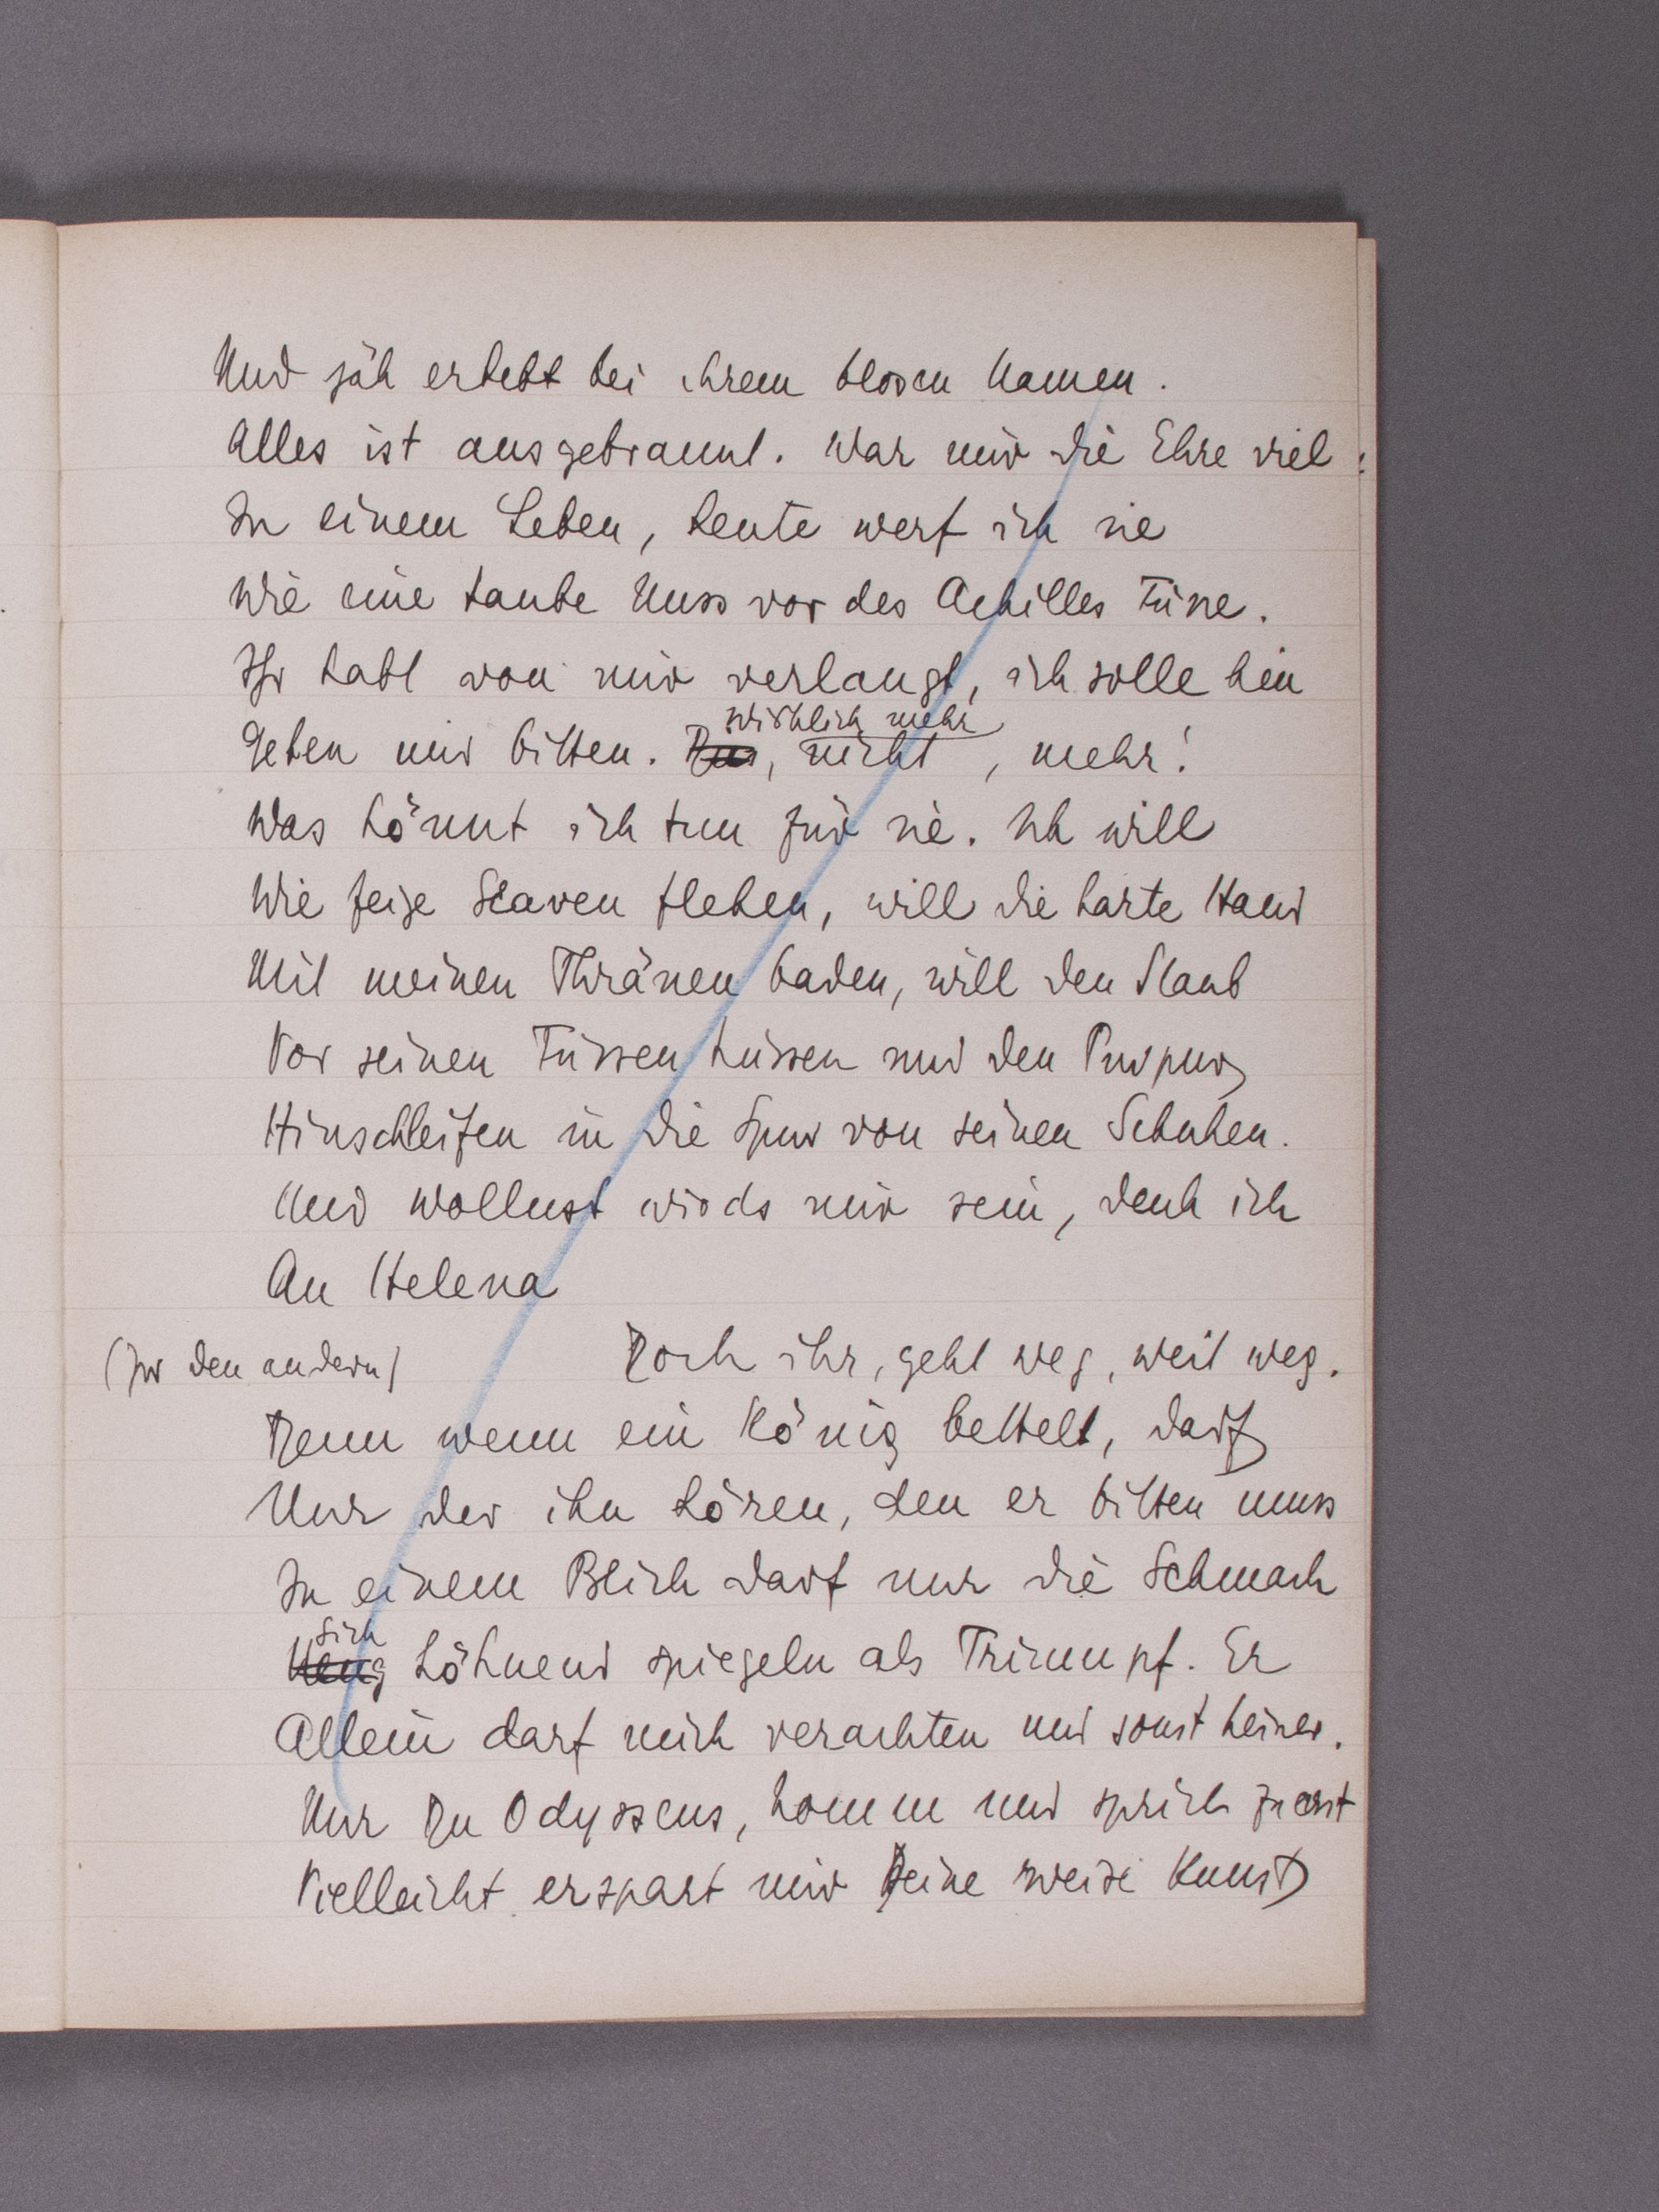 Und jäh erbebt bei ihrem blossen Namen.
Alles ist ausgebrannt. War mir die Ehre viel
In einem Leben, heute werf ich sie
Wie eine taube Nuss vor des Achilles Füsse.
Ihr habt von mir verlangt, ich solle hin
wirklich mehr
Gehen und bitten. , nicht, mehr!
Was könnt ich tun für sie. Ich will
Wie feige Sclaven flehen, will die harte Hand
Mit meinen Thränen baden, will den Staub
Vor seinen Füssen küssen und den Purpur
Hinschleifen in die Spur von seinen Schuhen.
Und Wollust wirds mir sein, denk ich
An Helena
(Zu den andern) Doch ihr, geht weg, weit weg.
Denn wenn ein König bettelt, darf
Nur der ihn hören, den er bitten muss
In einem Blick darf nur die Schmach
Sich
höhnend spiegeln als Triumpf. Er
Allein darf mich verachten und sonst keiner.
Nur Du Odysseus, komm und sprich zuerst
Vielleicht erspart mir Deine weise Kunst